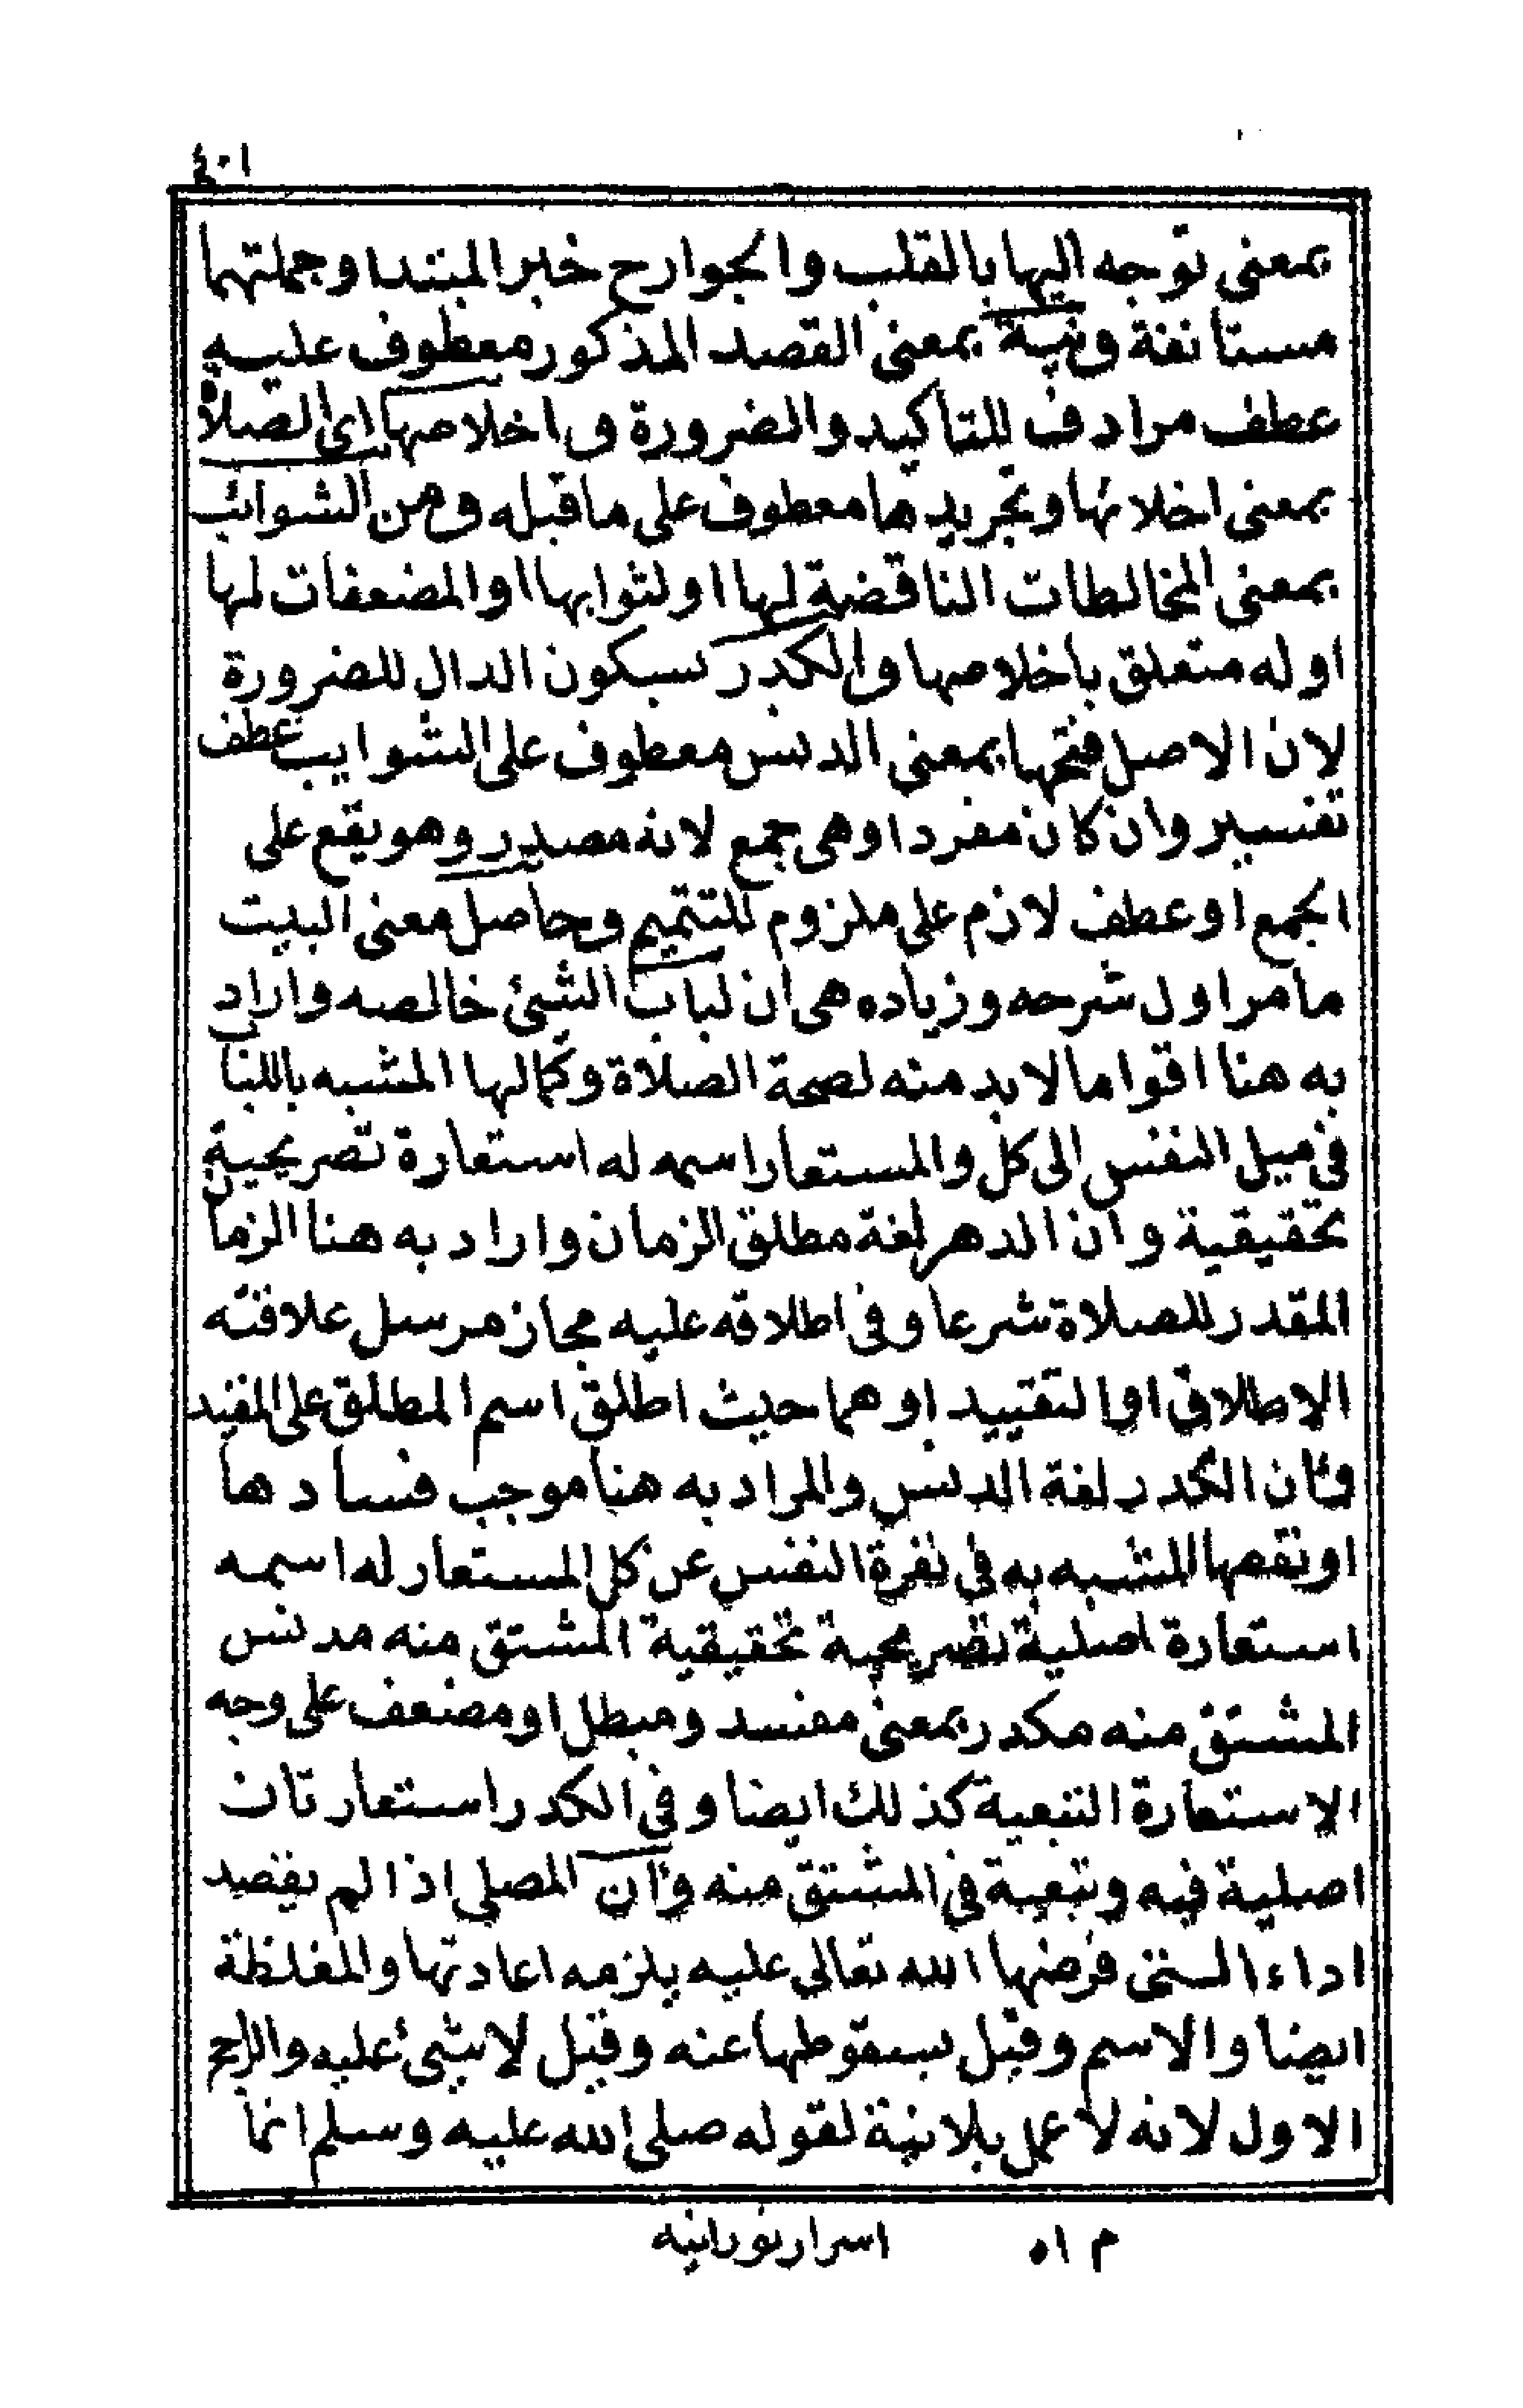 ٤٠١
بمعنى توجه اليها بالقلب والجوارح خبر المبتدا وجملتهما
مستانفة ونية بمعنى القصد المذكور معطوف عليه
عطف مرادف للتاكيد والضرورة واخلاصها اى الصلاة
بمعنى اخلائها وتجريدها معطوف على ما قبله ومن الشوائب
بمعنى المخالطات الناقضة لها او لثوابها او المضعفات لها
اوله متعلق باخلاصها والكدر بسكون الدال للضرورة
لان الاصل فتحها بمعنى الدنس معطوف على الشوايب عطف
تفسير وان كان مفردا وهى جمع لانه مصدر وهو يقع على
الجمع او عطف لازم على ملزوم للتتميم وحاصل معنى البيت
ما مر اول شرحه وزياده هى ان لباب الشئ خالصه واراد
به هنا اقواما لابد منه لصحة الصلاة وكمالها المشبه باللباب
فى ميل النفس الى كل والمستعار اسمه له استعارة تصريحية
تحقيقية وان الدهر لغة مطلق الزمان واراد به هنا الزمان
المقدر للصلاة شرعا وفى اطلاقه عليه مجاز مرسل علاقته
الاطلاق او التقييد او هما حيث اطلق اسم المطلق على المقيد
وان الكدر لغة الدنس والمراد به هنا موجب فسادها
او نقصها المشبه به فى نفرة النفس عن كل المستعار له اسمه
استعارة اصلية تصريحية تحقيقية المشتق منه مدنس
المشتق منه مكدر بمعنى مفسد ومبطل او مضعف على وجه
الاستعارة التبعية كذلك ايضا وفى الكدر استعارتان
اصلية فيه وتبعية فى المشتق منه وان المصلى اذا لم يقصد
اداء التى فرضها الله تعالى عليه يلزمه اعادتها والمغلظة
ايضا والاسم وقيل بسقوطها عنه وقيل لا شئ عليه والراجح
الاول لانه لا عمل بلانية لقوله صلى الله عليه وسلم انما
م ٥١ اسرار نورانيه